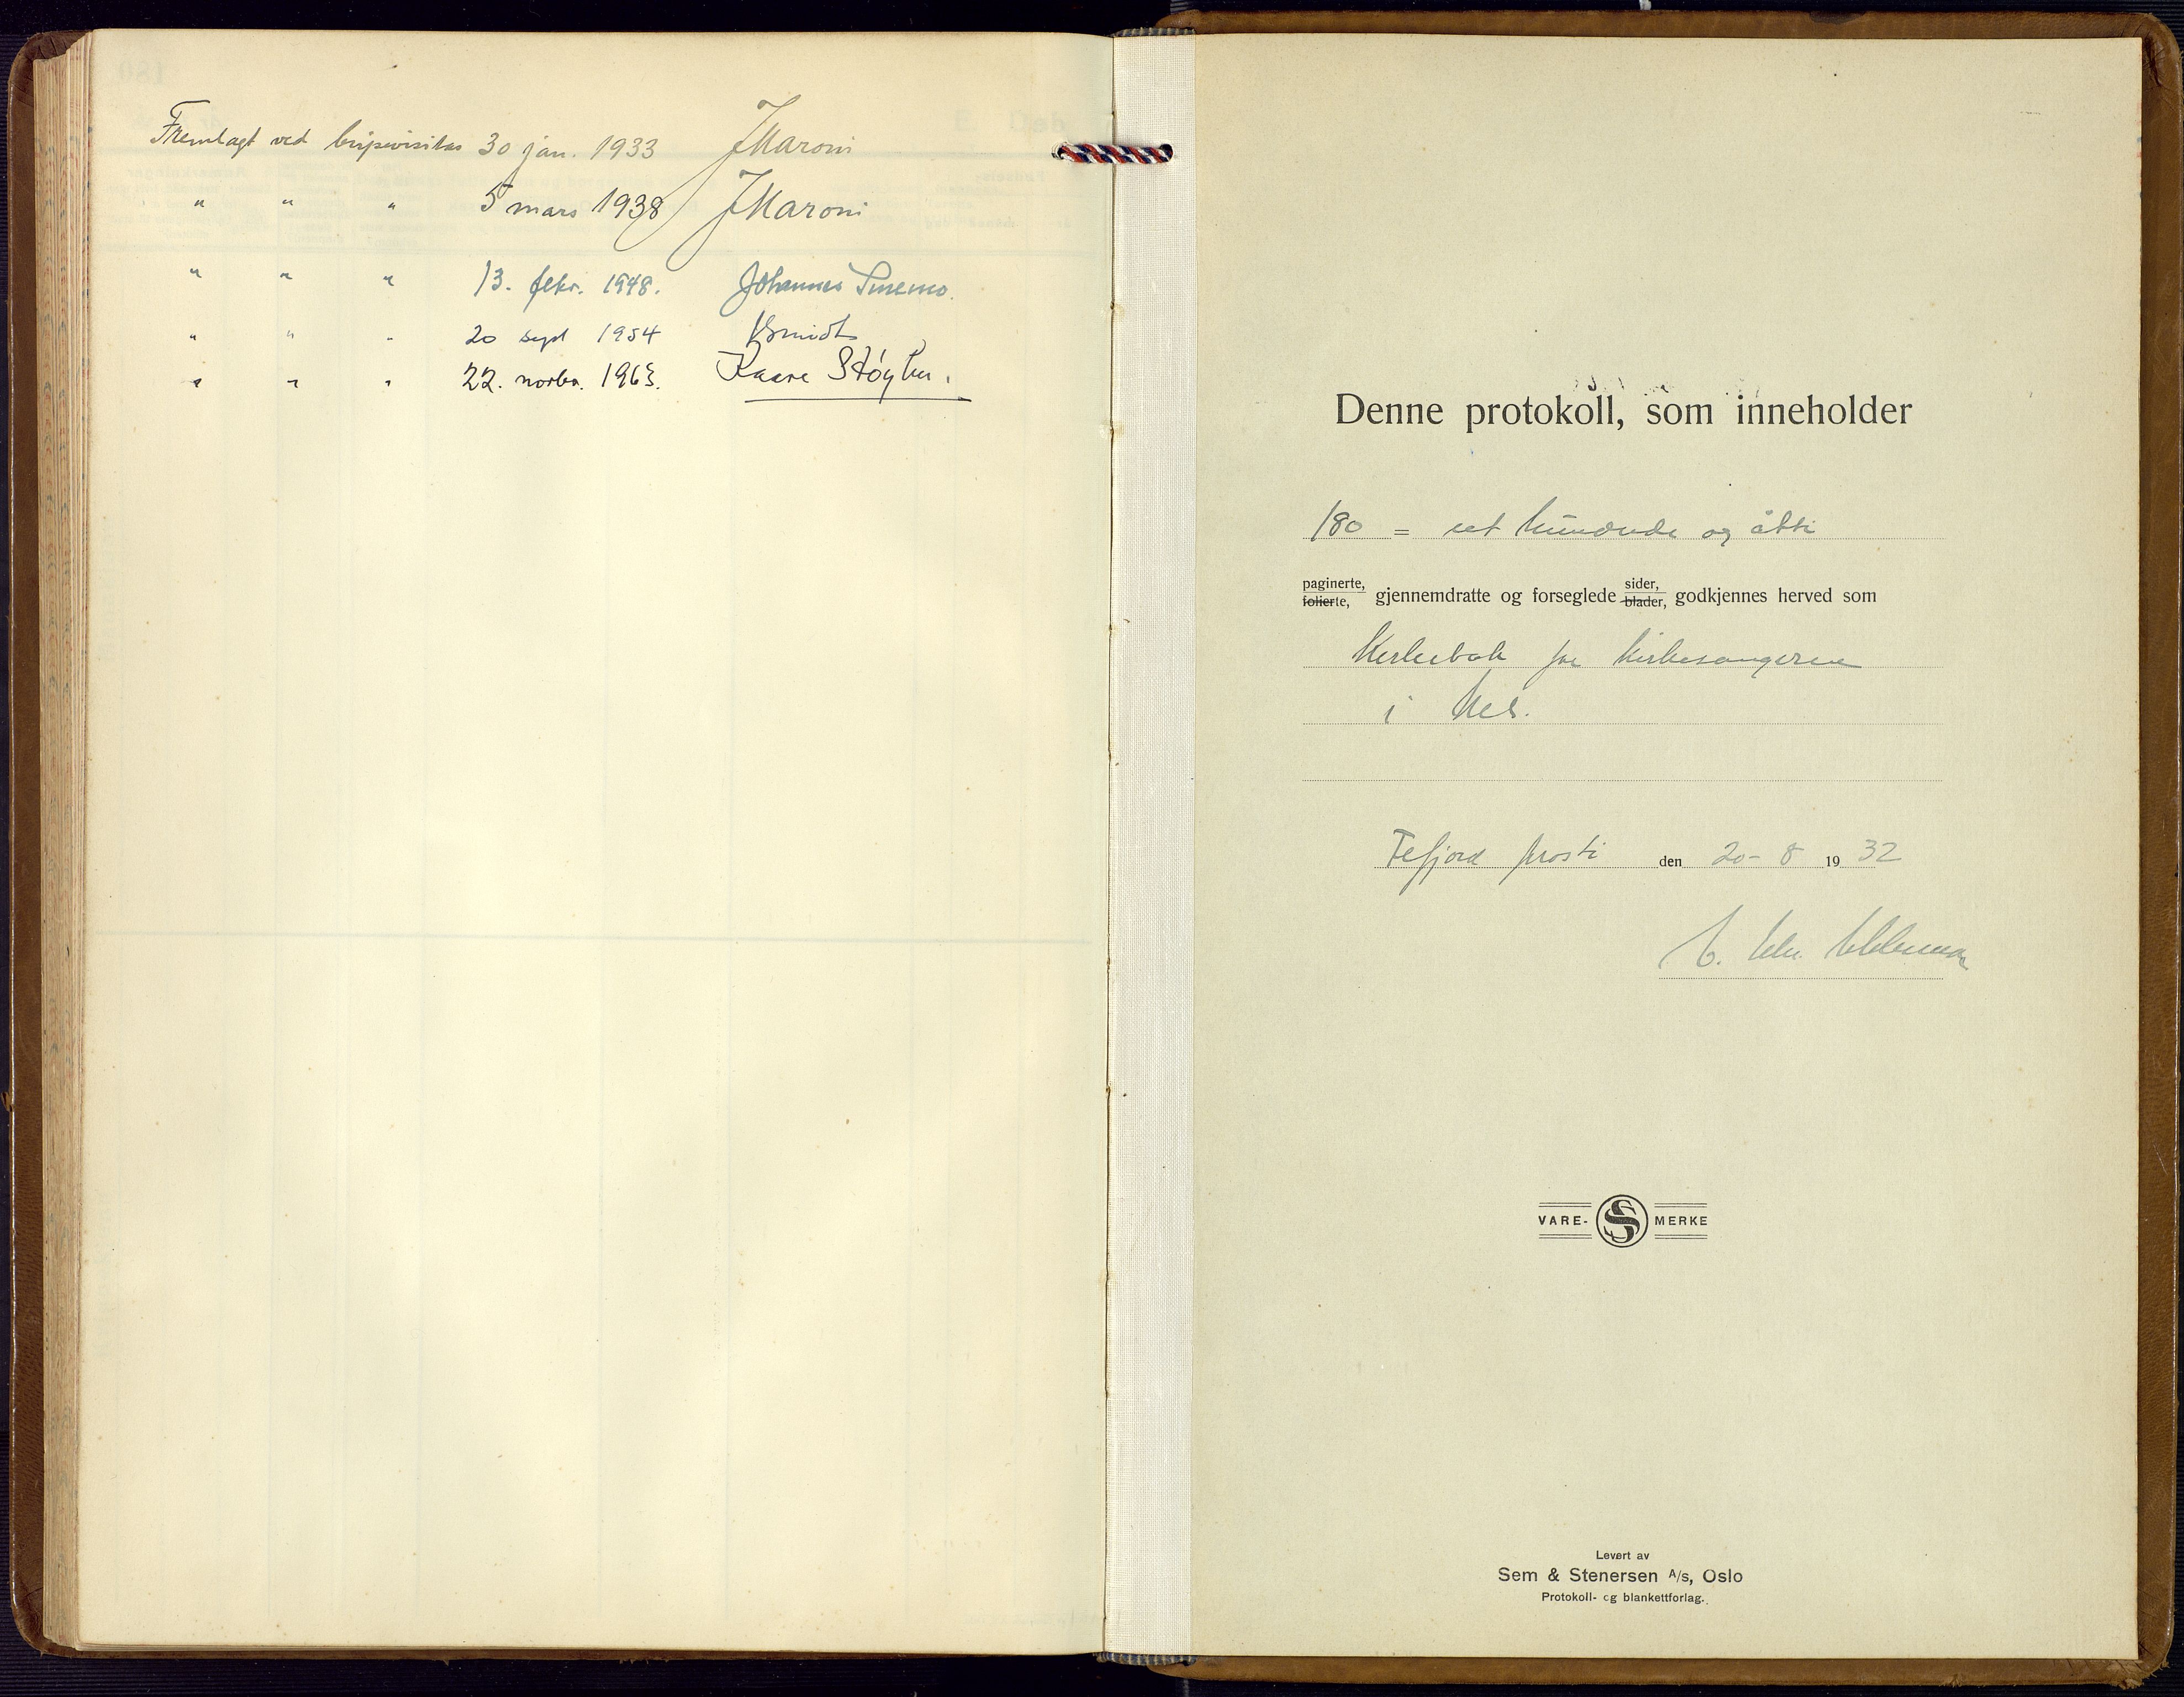 Fremlagt ved bispevisitas 30 jan. 1933 JMaroni
" " " 5 mars 1938 JMaroni
" " " 13. febr. 1948. Johannes Smemo.
" " " 20 sept 1954 Smidt
" " " 22. novbr. 1963. Kaare Støylen.
Denne protokoll, som inneholder
180 = et hundrede og åtti
paginerte, folierte, gjennemdratte og forseglede sider, blader, godkjennes herved som
Kirkebok for kirkesangeren
i Nes.
prosti den 20-8 1932
VARE- SS MERKE
Levert av
Sem & Stenersen A/s, Oslo
Protokoll- og blankettforlag.